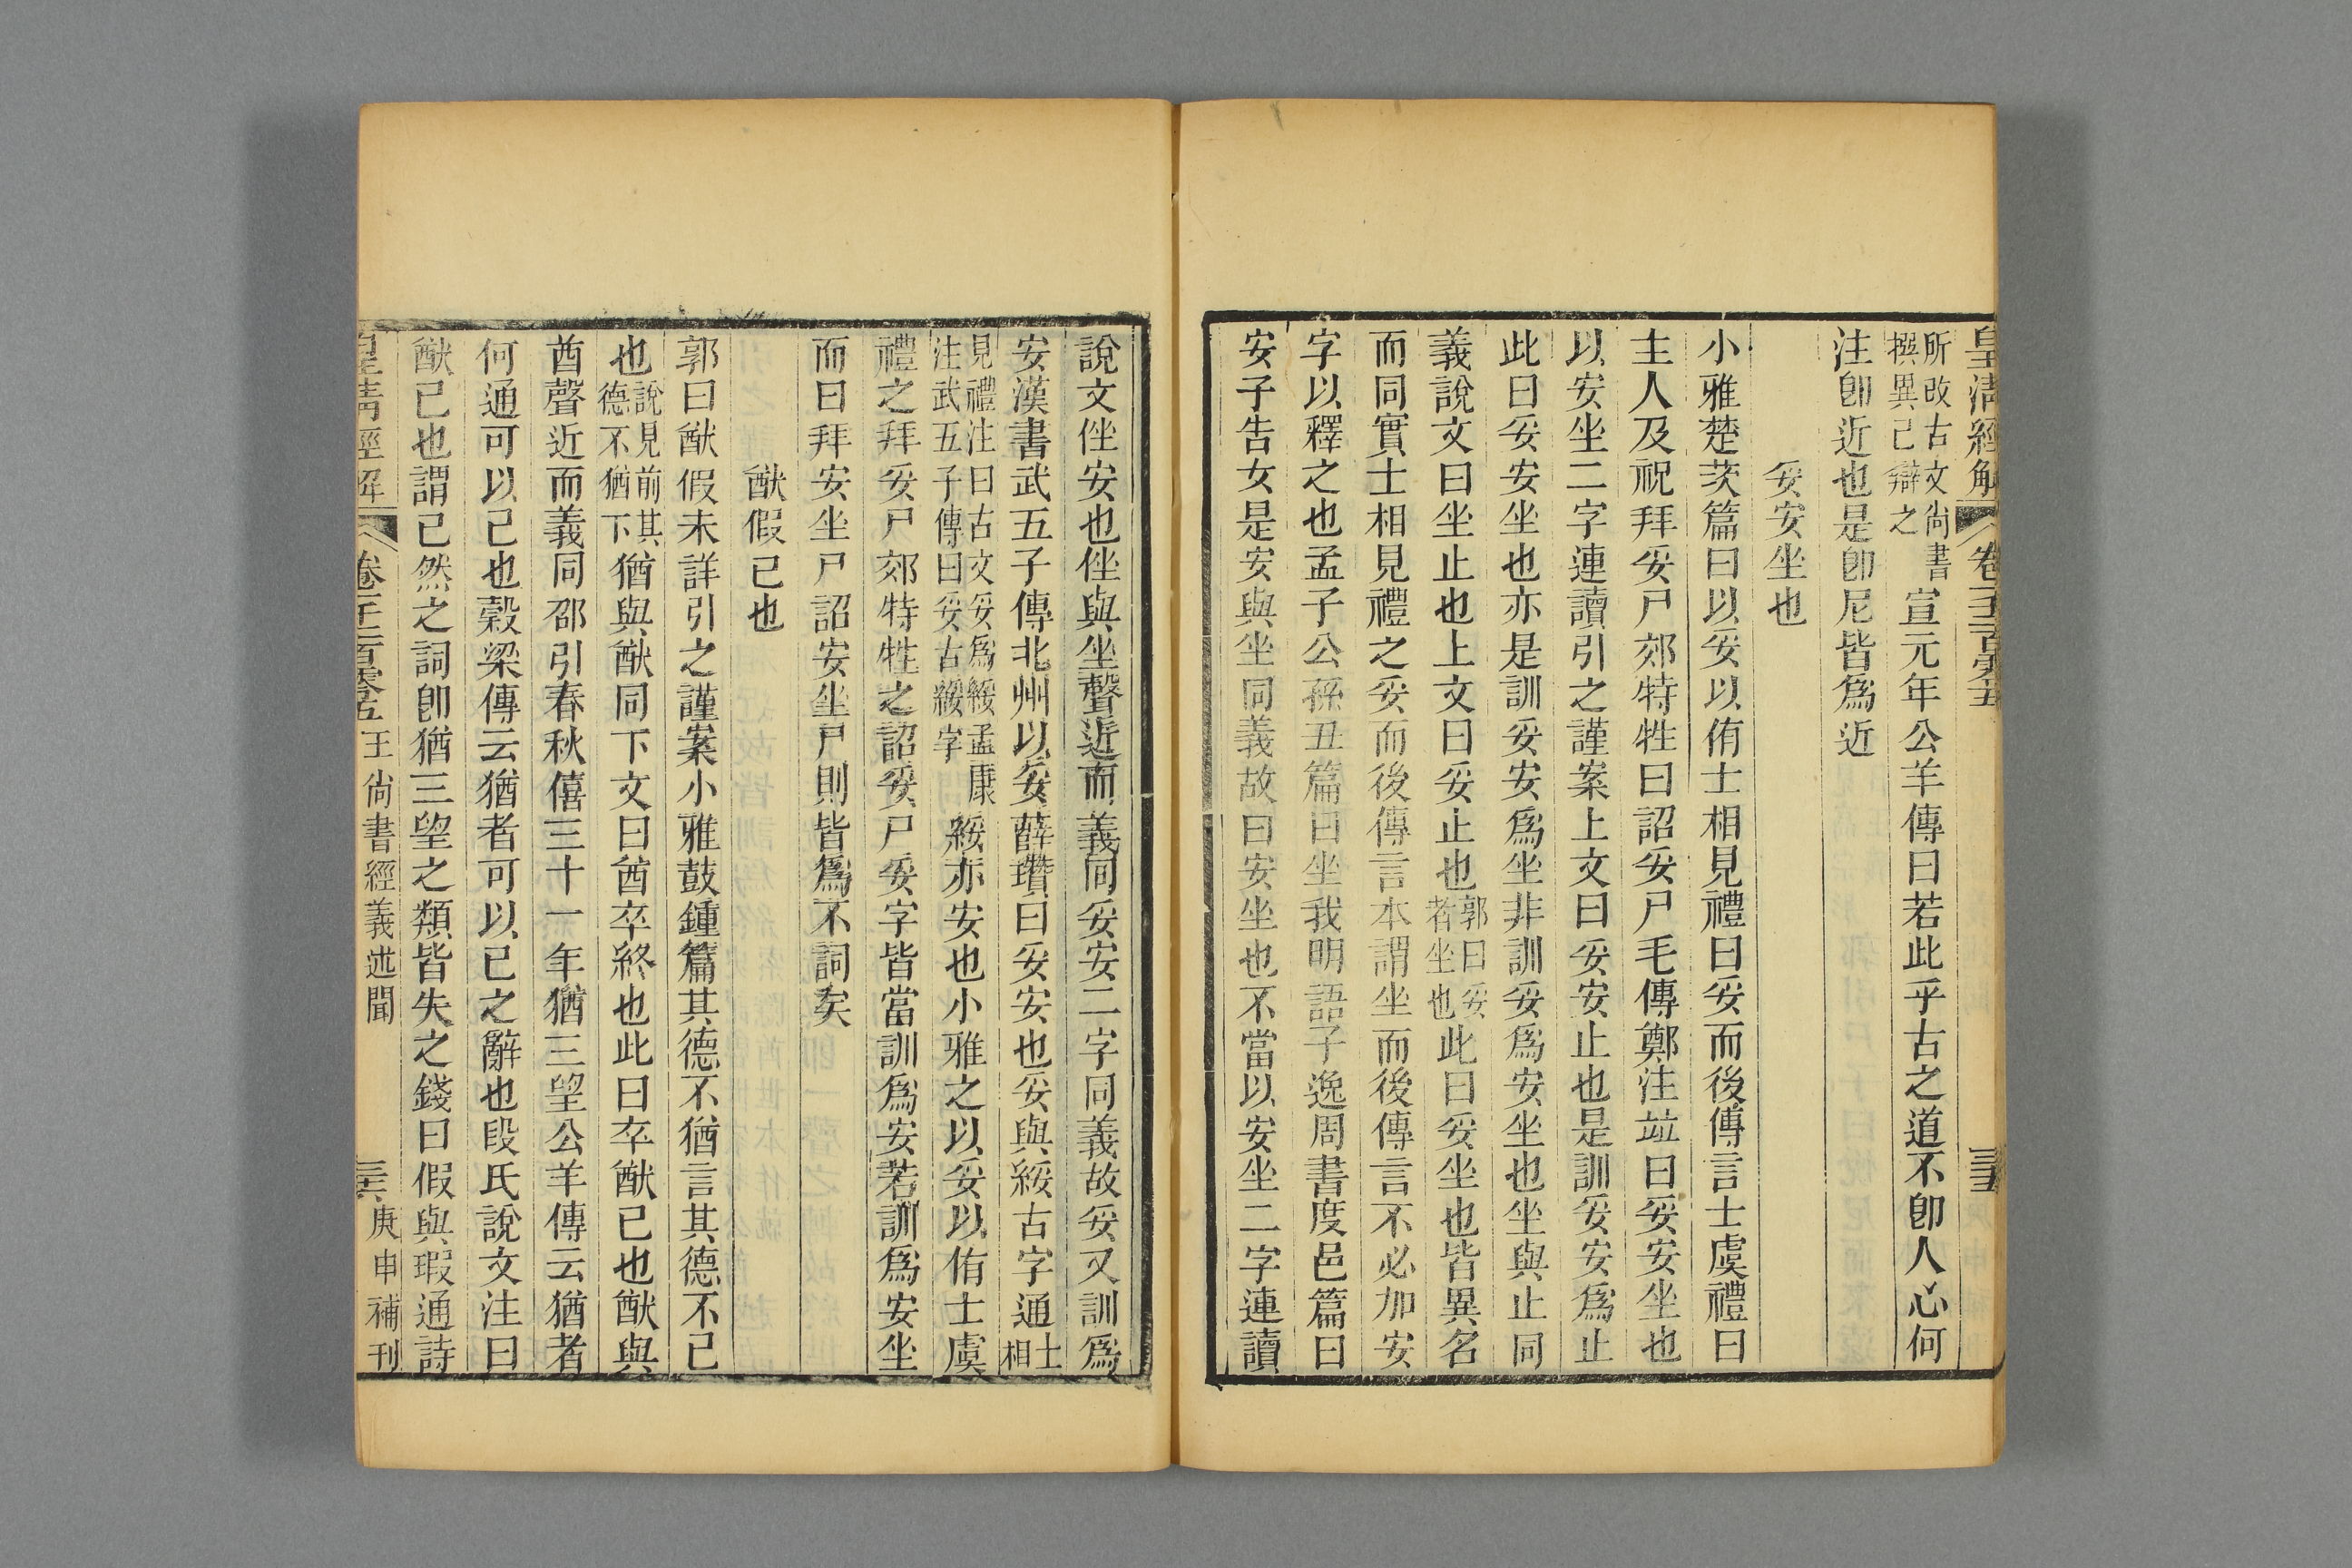 皇清經解 卷千二百零五
所改古文尚書
撰異已辯之
宣元年公羊傳曰若此乎古之道不卽人心何
注卽近也是卽尼皆爲近
妥安坐也
小雅楚茨篇曰以妥以侑士相見禮曰妥而後傳言士虞禮曰
主人及祝拜妥尸郊特牲曰詔妥尸毛傳鄭注竝曰妥安坐也
以安坐二字連讀引之謹案上文曰妥安止也是訓妥安爲止
此曰妥安坐也亦是訓妥安爲坐非訓妥爲安坐也坐與止同
義說文曰坐止也上文曰妥止也
郭曰妥
者坐也
此曰妥坐也皆異名
而同實士相見禮之妥而後傳言本謂坐而後傳言不必加安
字以釋之也孟子公孫丑篇曰坐我明語子逸周書度邑篇曰
安子告女是安與坐同義故曰安坐也不當以安坐二字連讀
說文侳安也侳與坐聲近而義同妥安二字同義故妥又訓爲
安漢書武五子傳北州以妥薛瓚曰妥安也妥與綏古字通
士相
見禮注曰古文妥爲綏孟康
注武五子傳曰妥古綏字
綏亦安也小雅之以妥以侑士虞
禮之拜妥尸郊特牲之詔妥尸妥字皆當訓爲安若訓爲安坐
而曰拜安坐尸詔安坐尸則皆爲不詞矣
猷假已也
郭曰猷假未詳引之謹案小雅鼓鍾篇其德不猶言其德不已
也
說見前其
德不猶下
猶與猷同下文曰酋卒終也此曰卒猷已也猷與
酋聲近而義同邵引春秋僖三十一年猶三望公羊傳云猶者
何通可以已也穀梁傳云猶者可以已之辭也段氏說文注曰
猷已也謂已然之詞卽猶三望之類皆失之錢曰假與瑕通詩
皇清經解 卷千二百零五 王尚書經義述聞 庚申補刊